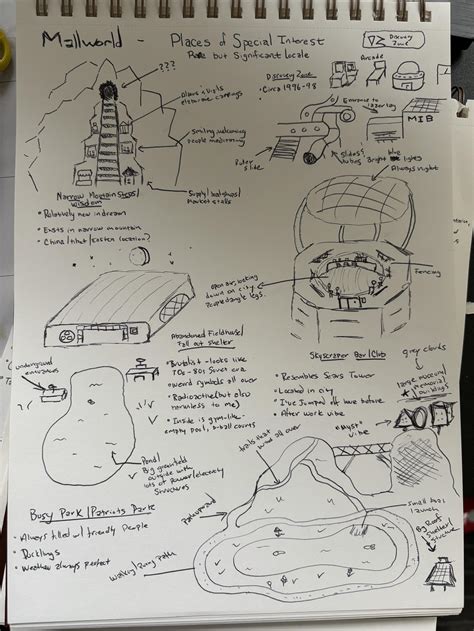 Mallworld - Places of Special Interest
Rare but Significant locale
Discovery Zone
Arcade
Discovery Zone
• Circa 1996-98
Entrance to lazer tag
MIB
???
Smiling, welcoming
people meditating
Roller
slide
Slides/
tubes
Bright blue lights
Always night
Supply/
Market stalls
Narrow Mountain Steps/
Wisdom
• Relatively new in dream
• Exists in narrow mountain
• China/Tibet/Eastern location?
Open air, looking
down on city
People dangle legs.
Fencing
Abandoned Fieldhouse/
Fall out shelter
• Brutalist - looks like
70s-80s Soviet era
• weird symbols all over
• Radioactive (but also
harmless to me)
• Inside is gym-like-
empty pool, b-ball courts
underground
entrances
Pond/
Big green field
outside with
lots of power/electricity
structures
Skyscraper Bar/Club
• Resembles Sears Tower
• Located in city
• I've jumped off here before
• After work vibe
grey clouds
large museum/
memorial
buildings
"Myst"
vibe
trails that
wind all over
Busy Park/Patriots Park
• Always filled w/ friendly people
• Ducklings
• Weather always perfect
Playground
Walking/Running path
Small pool
Big Roof
Shelter/
structure